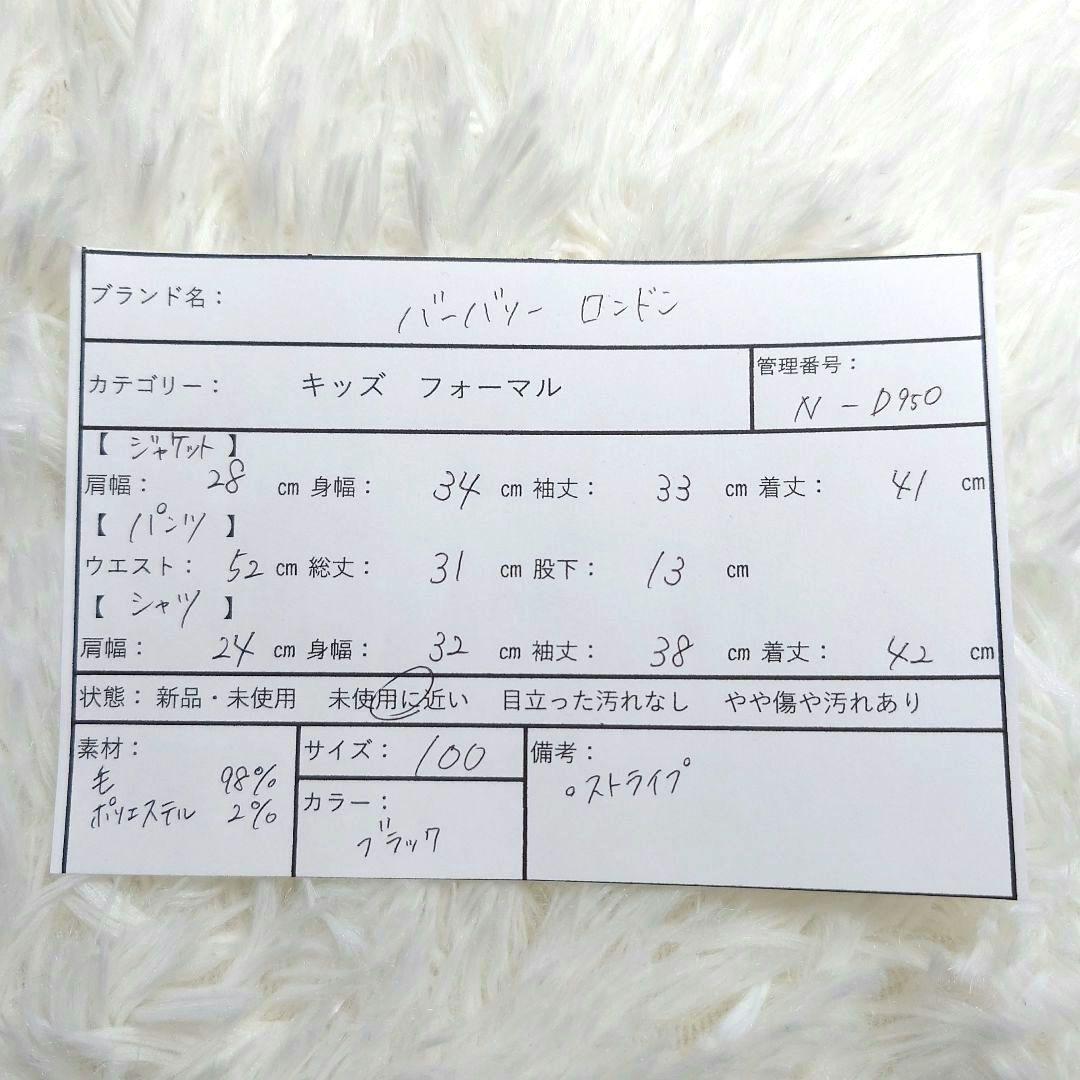 ブランド名： バーバリー ロンドン
カテゴリー： キッズ フォーマル
管理番号：
N-D950
【 ジャケット 】
肩幅： 28 cm 身幅： 34 cm 袖丈： 33 cm 着丈： 41 cm
【 パンツ 】
ウエスト： 52 cm 総丈： 31 cm 股下： 13 cm
【 シャツ 】
肩幅： 24 cm 身幅： 32 cm 袖丈： 38 cm 着丈： 42 cm
状態： 新品・未使用 未使用に近い 目立った汚れなし やや傷や汚れあり
素材：
毛 98%
ポリエステル 2%
サイズ： 100
カラー：
ブラック
備考：
○ストライプ